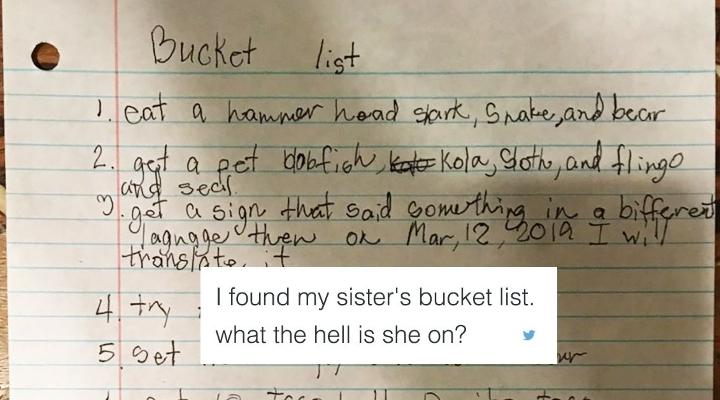 Bucket list
1. eat a hammer head skark, Snake, and bear
2. get a pet bobfich, Kola, Sloth, and flingo
and seal.
3. get a sign that said something in a bifferent
lagnage then on Mar, 12, 2019 I will
translate it
4. try
I found my sister's bucket list.
what the hell is she on?
5. set